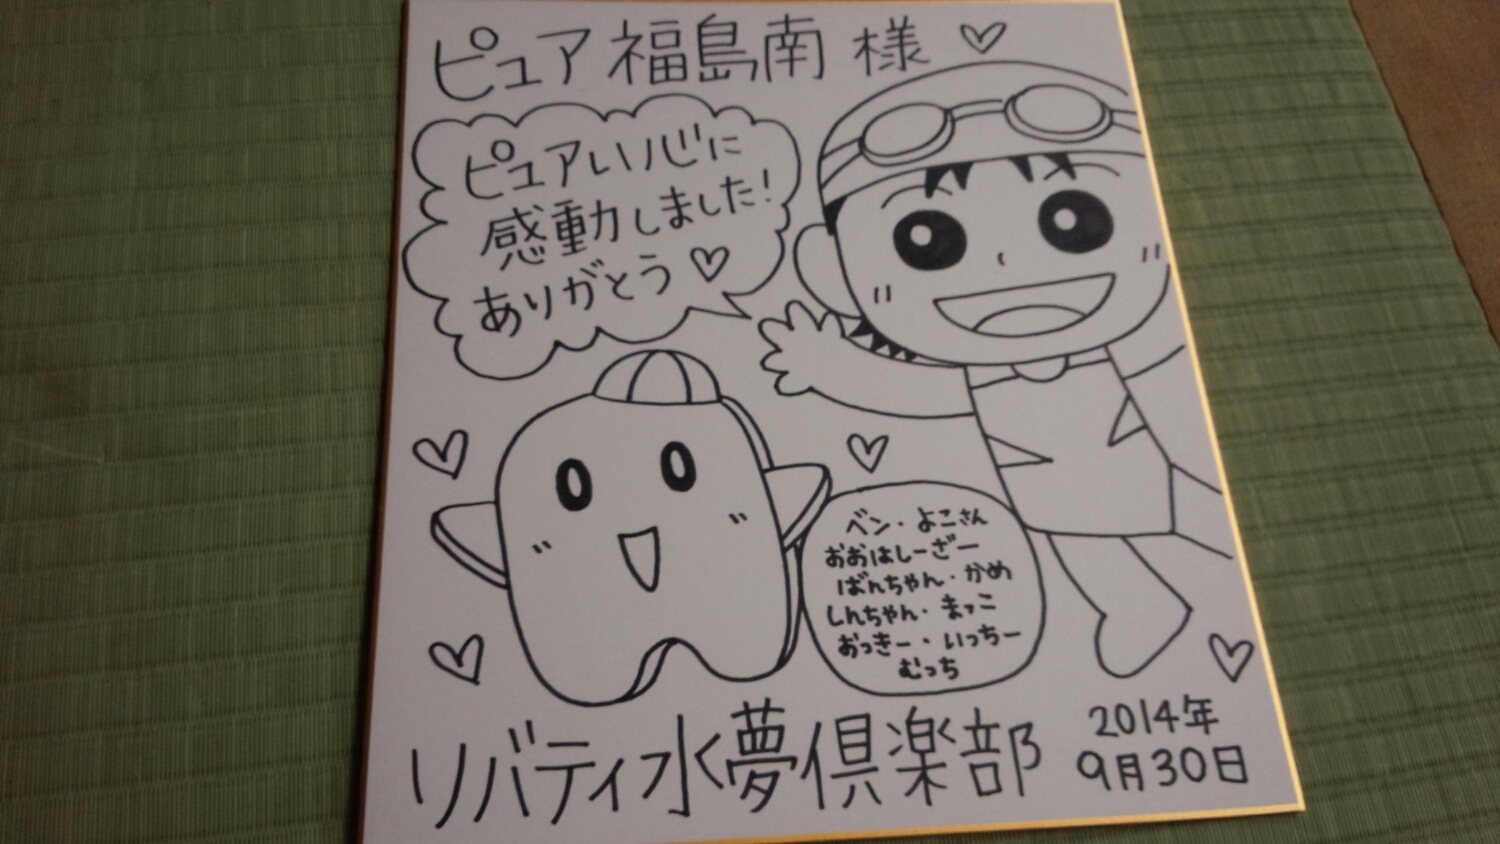 ピュア福島南 様
ピュアいい心に
感動しました!
ありがとう
ベン・よこさん
おおはしーざー
ばんちゃん・かめ
しんちゃん・まっこ
おっきー・いっちー
むっち
リバティ水夢倶楽部
2014年
9月30日